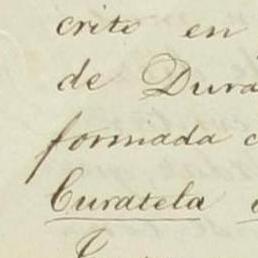 crito en
de Dura
formada c
Curatela